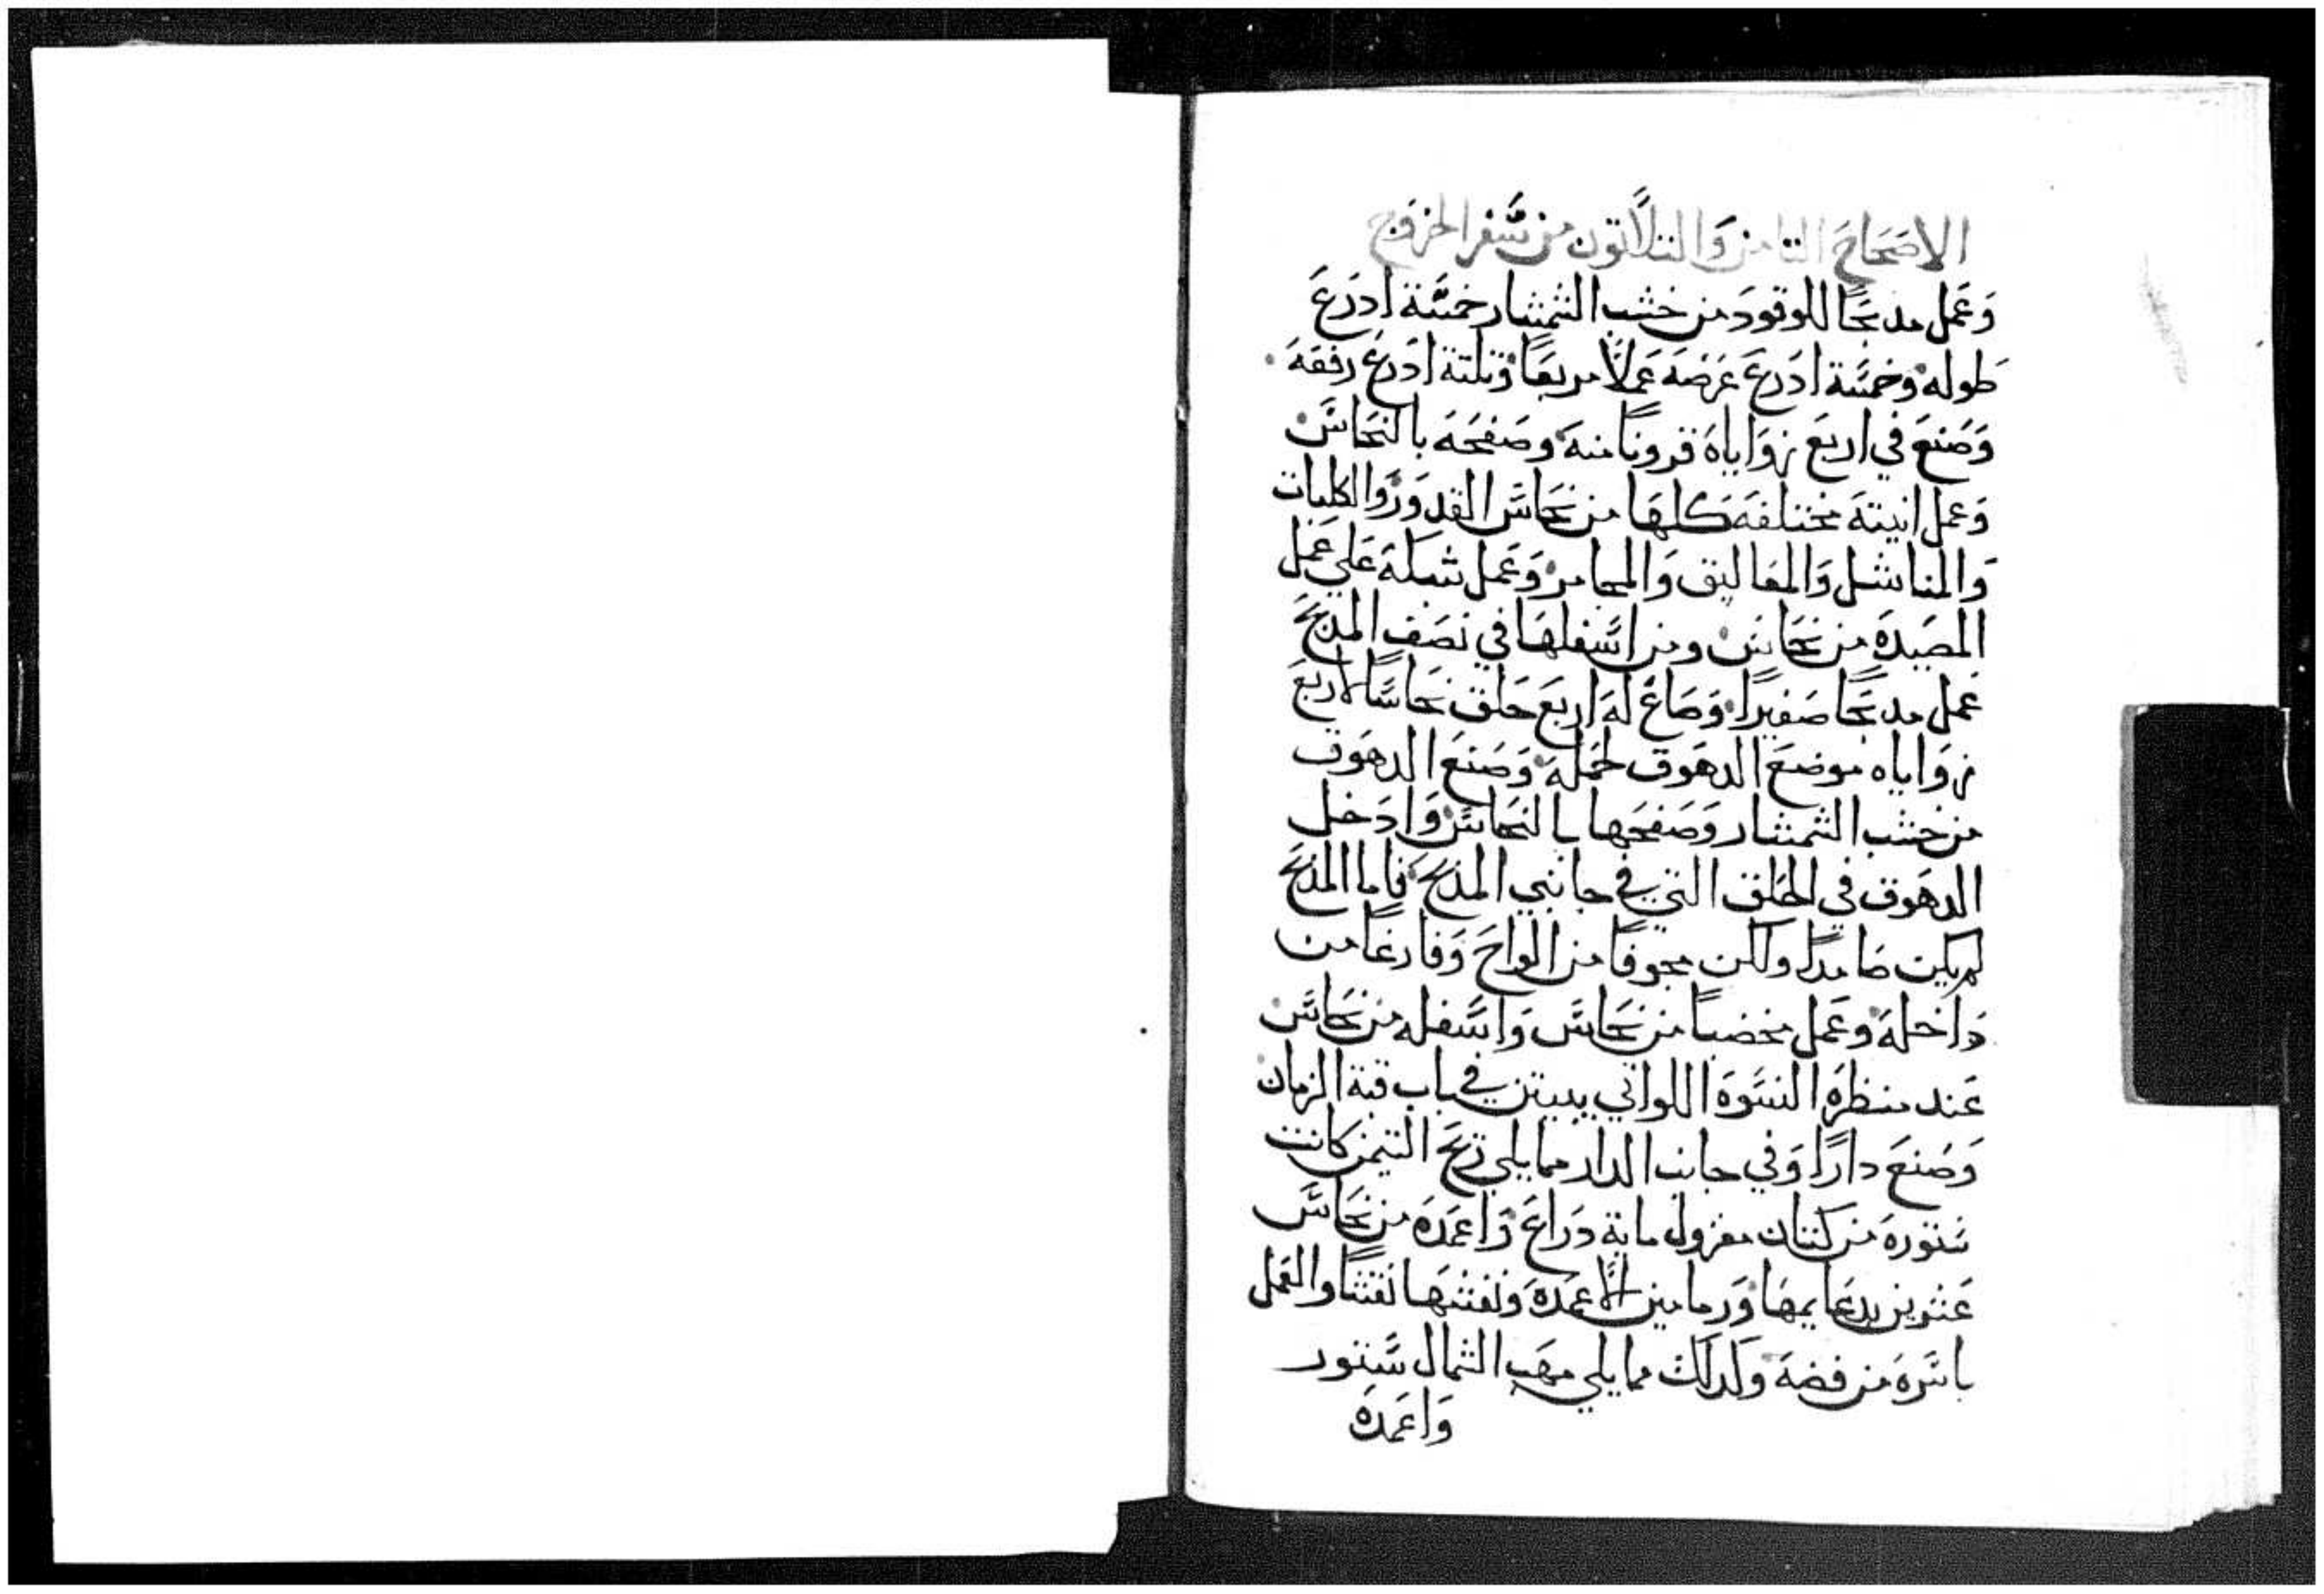 الاصحاح التامن والتلاتون من سفر الخروج
وعمل مدبحًا للوقود من خشب الشمشار خمسة ادرع
طوله وخمسة ادرع عرضه عملًا مربعًا وتلتة ادرع رفعه
وصنع في اربع زواياه قرونًا منه وصفحه بالنحاس
وعمل انيته مختلفه كلها من نحاس القدور والكلبات
والمناشل والمعاليق والمجامر وعمل شبكه علي عمل
المصيده من نحاس ومن اسفلها في نصف المدبح
عمل مدبحًا صغيرًا وصاغ له اربع حلق نحاسًا لاربع
زواياه موضع الدهوق لحمله وصنع الدهوق
من خشب الشمشار وصفحها بالنحاس وادخل
الدهوق في الحلق التي في جانبي المدبح فاما المدبح
لم يكن صامدًا ولكن مجوفًا من الواح وفارغًا من
داخله وعمل مخضبًا من نحاس واسفله من نحاس
عند منظرة النسوة اللواتي يبيتن في باب قبة الزمان
وصنع دارًا وفي جانب الدار مما يلي ريح التيمن كانت
ستوره من كتان مغزول ماية دراع واعمده من نحاس
عشرين بدعايمها ورمامين الاعمده ونقشها نقشًا والعمل
باسره من فضه وكدلك مما يلي مهب الشمال ستور
واعمده